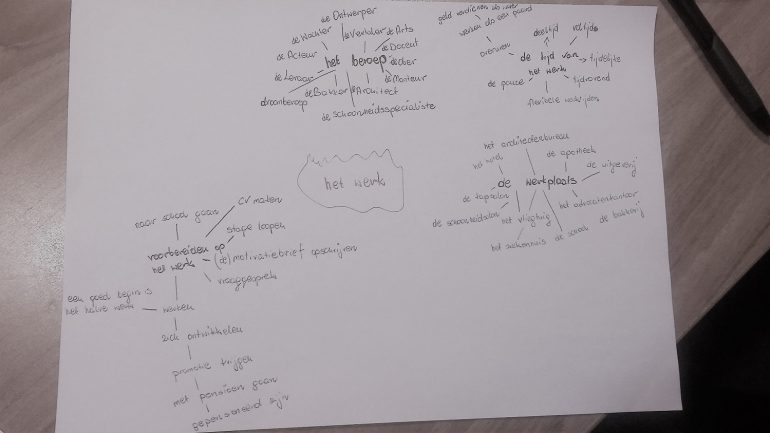 de Ontwerper
de Wachter
de Verkoper
de Arts
de Acteur
de Docent
het beroep
de Ober
de Leraar
de Monteur
droomberoep
de Bakker
de Architect
de schoonheidsspecialiste
geld verdienen als water
werken als een paard
overuren
deeltijd
voltijds
de tijd van
het werk
tijdelijke
de pauze
tijdrovend
flexibele werktijden
het werk
het architectenbureau
de apotheek
het hotel
de uitgeverij
de werkplaats
de kapsalon
het advocatenkantoor
de schoonheidsalon
het vliegtuig
de bakkerij
het ziekenhuis
de school
naar school gaan
CV maken
stage lopen
voorbereiden op
het werk
(de) motivatiebrief opschrijven
vraaggesprek
een goed begin is
het halve werk
werken
zich ontwikkelen
promotie krijgen
met pensioen gaan
gepensioneerd zijn